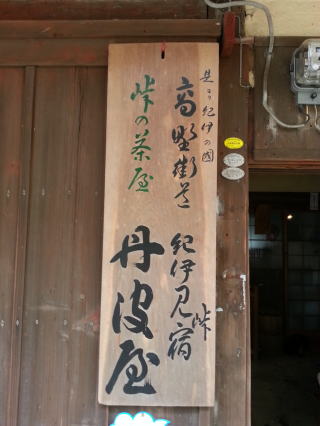 是より紀伊の國
高野街道 紀伊見峠宿
峠の茶屋
丹波屋